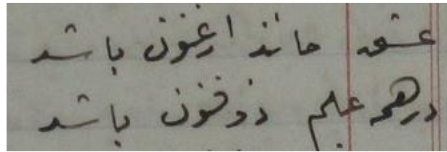 عشق مانند ارغنون باشد
در همه علم ذوفنون باشد